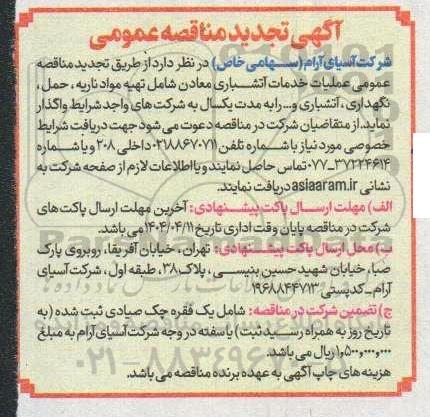 آگهی تجدید مناقصه عمومی
شرکت آسیای آرام (سهامی خاص) در نظر دارد از طریق تجدید مناقصه
عمومی عملیات خدمات آتشباری معادن شامل تهیه مواد ناریه ، حمل ،
نگهداری ، آتشباری و... را به مدت یکسال به شرکت های واجد شرایط واگذار
نماید. از متقاضیان شرکت در مناقصه دعوت می شود جهت دریافت شرایط
خصوصی مورد نیاز با شماره تلفن ۰۲۱۸۸۶۷۰۷۱۱ داخلی ۲۰۸ و یا شماره
۰۷۷-۳۷۲۲۴۶۱۴ تماس حاصل نمایند و یا اطلاعات لازم از صفحه شرکت به
نشانی asiaaram.ir دریافت نمایند.
الف) مهلت ارسال پاکت پیشنهادی: آخرین مهلت ارسال پاکت های
شرکت در مناقصه پایان وقت اداری تاریخ ۱۴۰۴/۰۴/۱۱ می باشد.
ب) محل ارسال پاکت پیشنهادی: تهران ، خیابان آفریقا، روبروی پارک
صبا، خیابان شهید حسین بنیسی ، پلاک ۳۸، طبقه اول ، شرکت آسیای
آرام_ کدپستی ۱۹۶۸۸۴۴۷۱۳
ج) تضمین شرکت در مناقصه: شامل یک فقره چک صیادی ثبت شده (به
تاریخ روز به همراه رسید ثبت) یا سفته در وجه شرکت آسیای آرام به مبلغ
۱,۵۰۰,۰۰۰,۰۰۰ ریال می باشد.
هزینه های چاپ آگهی به عهده برنده مناقصه می باشد.